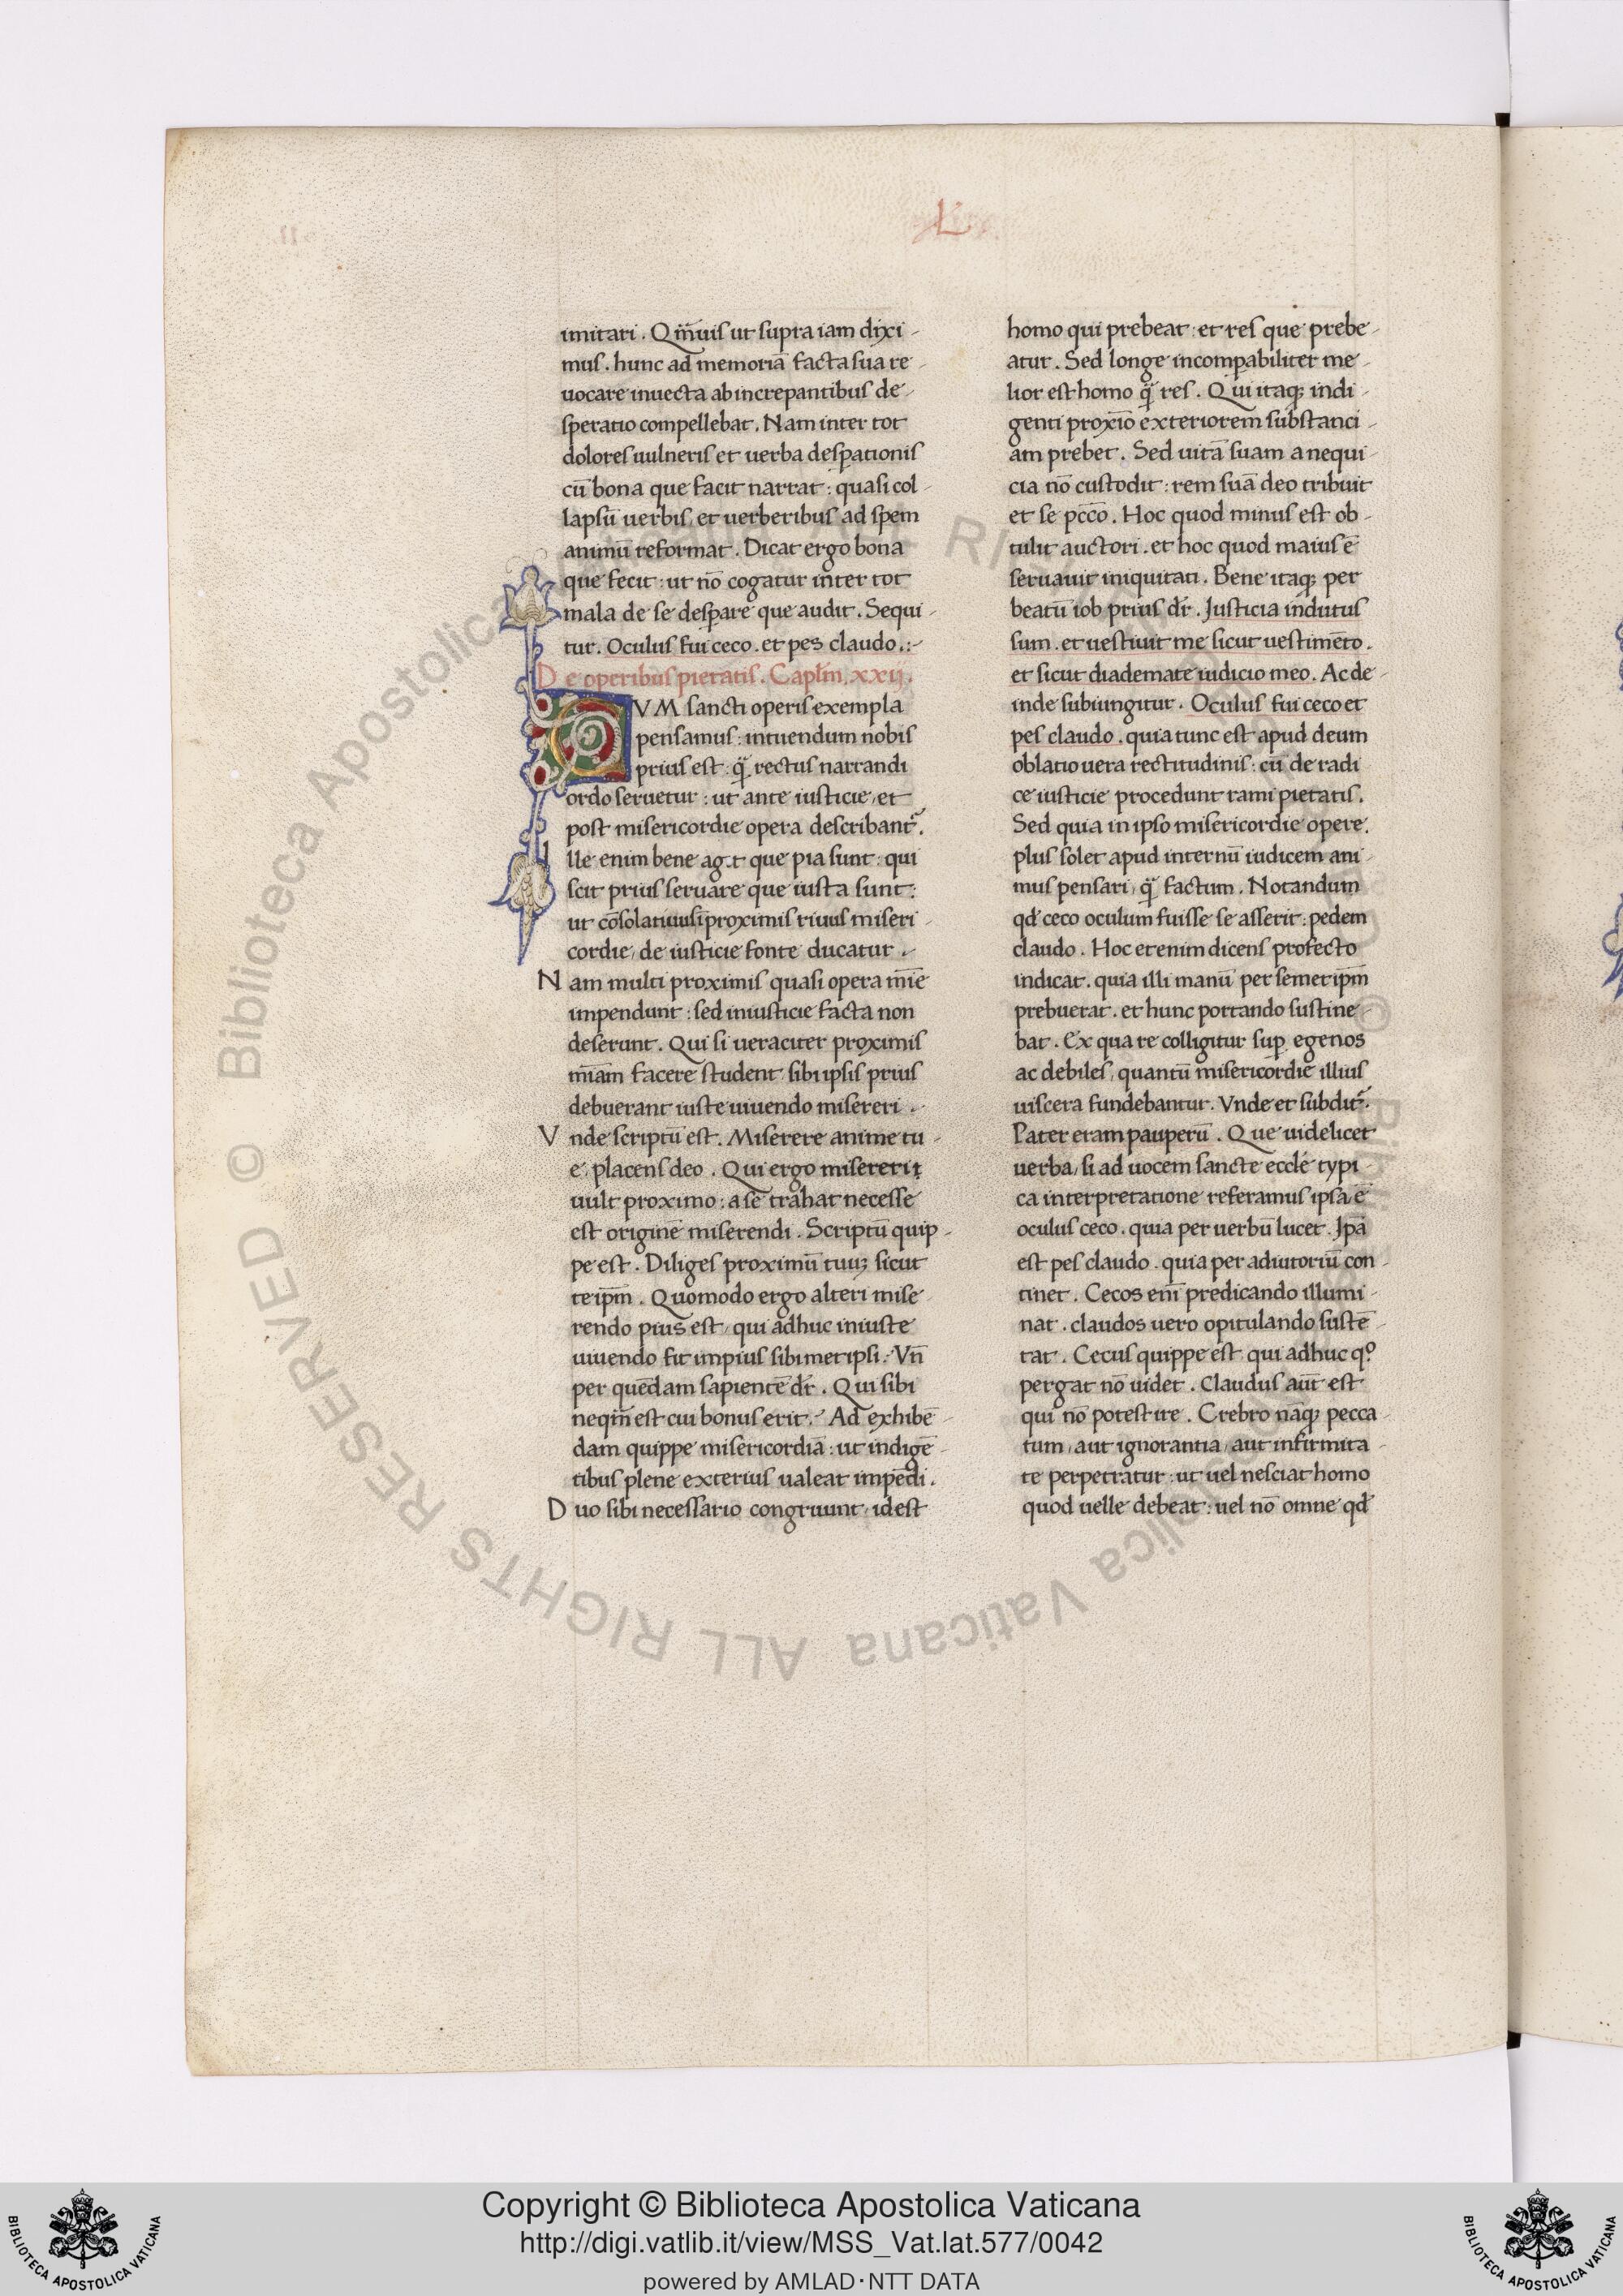 L
imitari . Qm̄uis ut supra iam dixi -
mus . hunc ad memoriā facta sua re -
uocare inuecta ab increpantibus de -
speratio compellebat . Nam inter tot
dolores uulneris et uerba desꝑationis
cū bona que facit narrat : quasi col -
lapsū uerbis, et uerberibus ad spem
animū reformat . Dicat ergo bona
que fecit : ut nō cogatur inter tot
mala de se desꝑare que audit . Sequi -
tur . Oculus fui ceco . et pes claudo .:-
De operibus pietatis . Capl̄m . xxij .
CVM sancti operis exempla
pensamus : intuendum nobis
prius est : q̄ rectus narrandi
ordo seruetur : ut ante iusticie, et
post misericordie opera describant᷑ .
Ille enim bene agit que pia sunt : qui
scit prius seruare que iusta sunt :
ut cōsolatiuusī proximis riuus miseri -
cordie, de iusticie fonte ducatur .
Nam multi proximis quasi opera m̄ie
impendunt : sed iniusticie facta non
deserunt . Qui si ueraciter proximis
m̄iam facere student, sibi ipsis prius
debuerant iuste uiuendo misereri .
Vnde scriptū est . Miserere anime tu -
e placens deo . Qui ergo misererit
uult proximo : a se trahat necesse
est originē miserendi . Scriptū quip -
pe est . Diliges proximū tuuꝫ sicut
te ip̄m . Quomodo ergo alteri mise -
rendo pius est, qui adhuc iniuste
uiuendo fit impius sibimet ipsi . Vn̄
per quēdam sapientē dr̄ . Qui sibi
neqm̄ est cui bonus erit . Ad exhibē -
dam quippe misericordiā : ut indigē -
tibus plene exterius ualeat impēdi .
Duo sibi necessario congruunt, id est
homo qui prebeat : et res que prebe -
atur . Sed longe incomꝑabiliter me -
lior est homo q̄ res . Qui itaqꝫ indi -
genti proxīo exteriorem substanci -
am prebet . Sed uitā suam a nequi -
cia nō custodit : rem suā deo tribuit
et se pcc̄o . Hoc quod minus est ob -
tulit auctori . et hoc quod maius ē
seruauit iniquitati . Bene itaqꝫ per
beatū iob prius dr̄ . Justicia indutus
sum . et uestiuit me sicut uestimēto .
et sicut diademate iudicio meo . Ac de -
inde subiungitur . Oculus fui ceco et
pes claudo . quia tunc est apud deum
oblatio uera rectitudinis : cū de radi
ce iusticie procedunt rami pietatis .
Sed quia in ipso misericordie opere,
plus solet apud internū iudicem ani -
mus pensari, q̄ factum . Notandum
qd̄ ceco oculum fuisse se asserit : pedem
claudo . Hoc etenim dicens profecto
indicat . quia illi manū per semetip̄m
prebuerat . et hunc portando sustine -
bat . Ex qua re colligitur suꝑ egenos
ac debiles, quantū misericordie illius
uiscera fundebantur . Vnde et subdit᷑ .
Pater eram pauperū . Que uidelicet
uerba, si ad uocem sancte eccl̄e typi -
ca interpretatione referamus ipsa ē
oculus ceco . quia per uerbū lucet . Jp̄a
est pes claudo . quia per adiutoriū con -
tinet . Cecos eni̅ predicando illumi -
nat . claudos uero opitulando sustē -
tat . Cecus quippe est qui adhuc qº
pergat nō uidet . Claudus aut̄ est
qui nō potest ire . Crebro nāqꝫ pecca -
tum, aut ignorantia, aut infirmita -
te perpetratur : ut uel nesciat homo
quod uelle debeat : uel nō omne qd̄
© Biblioteca Apostolica Vaticana ALL RIGHTS RESERVED
Copyright © Biblioteca Apostolica Vaticana
http://digi.vatlib.it/view/MSS_Vat.lat.577/0042
powered by AMLAD·NTT DATA
BIBLIOTECA APOSTOLICA VATICANA
BIBLIOTECA APOSTOLICA VATICANA